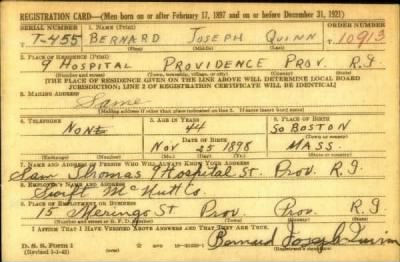 REGISTRATION CARD—(Men born on or after February 17, 1897 and on or before December 31, 1921)
SERIAL NUMBER 1. NAME (Print) ORDER NUMBER
T-455 BERNARD JOSEPH QUINN 10913
(First) (Middle) (Last)
2. PLACE OF RESIDENCE (Print)
9 HOSPITAL PROVIDENCE PROV. R.I.
(Number and street) (Town, township, village, or city) (County) (State)
[THE PLACE OF RESIDENCE GIVEN ON THE LINE ABOVE WILL DETERMINE LOCAL BOARD
JURISDICTION; LINE 2 OF REGISTRATION CERTIFICATE WILL BE IDENTICAL]
3. MAILING ADDRESS
Same
[Mailing address if other than place indicated on line 2. If same insert word same]
4. TELEPHONE 5. AGE IN YEARS 6. PLACE OF BIRTH
NONE 44 SO BOSTON
DATE OF BIRTH (Town or county)
NOV 25 1898 MASS.
(Exchange) (Number) (Mo.) (Day) (Yr.) (State or country)
7. NAME AND ADDRESS OF PERSON WHO WILL ALWAYS KNOW YOUR ADDRESS
Sam Thomas 9 Hospital St. Prov. R.I.
8. EMPLOYER'S NAME AND ADDRESS
Swift McNutt Co.
9. PLACE OF EMPLOYMENT OR BUSINESS
15 St Prov. Prov. R.I
(Number and street or R. F. D. number) (Town) (County) (State)
I AFFIRM THAT I HAVE VERIFIED ABOVE ANSWERS AND THAT THEY ARE TRUE.
D. S. S. Form 1
(Revised 1-1-42) (over)
Bernard Joseph Quinn